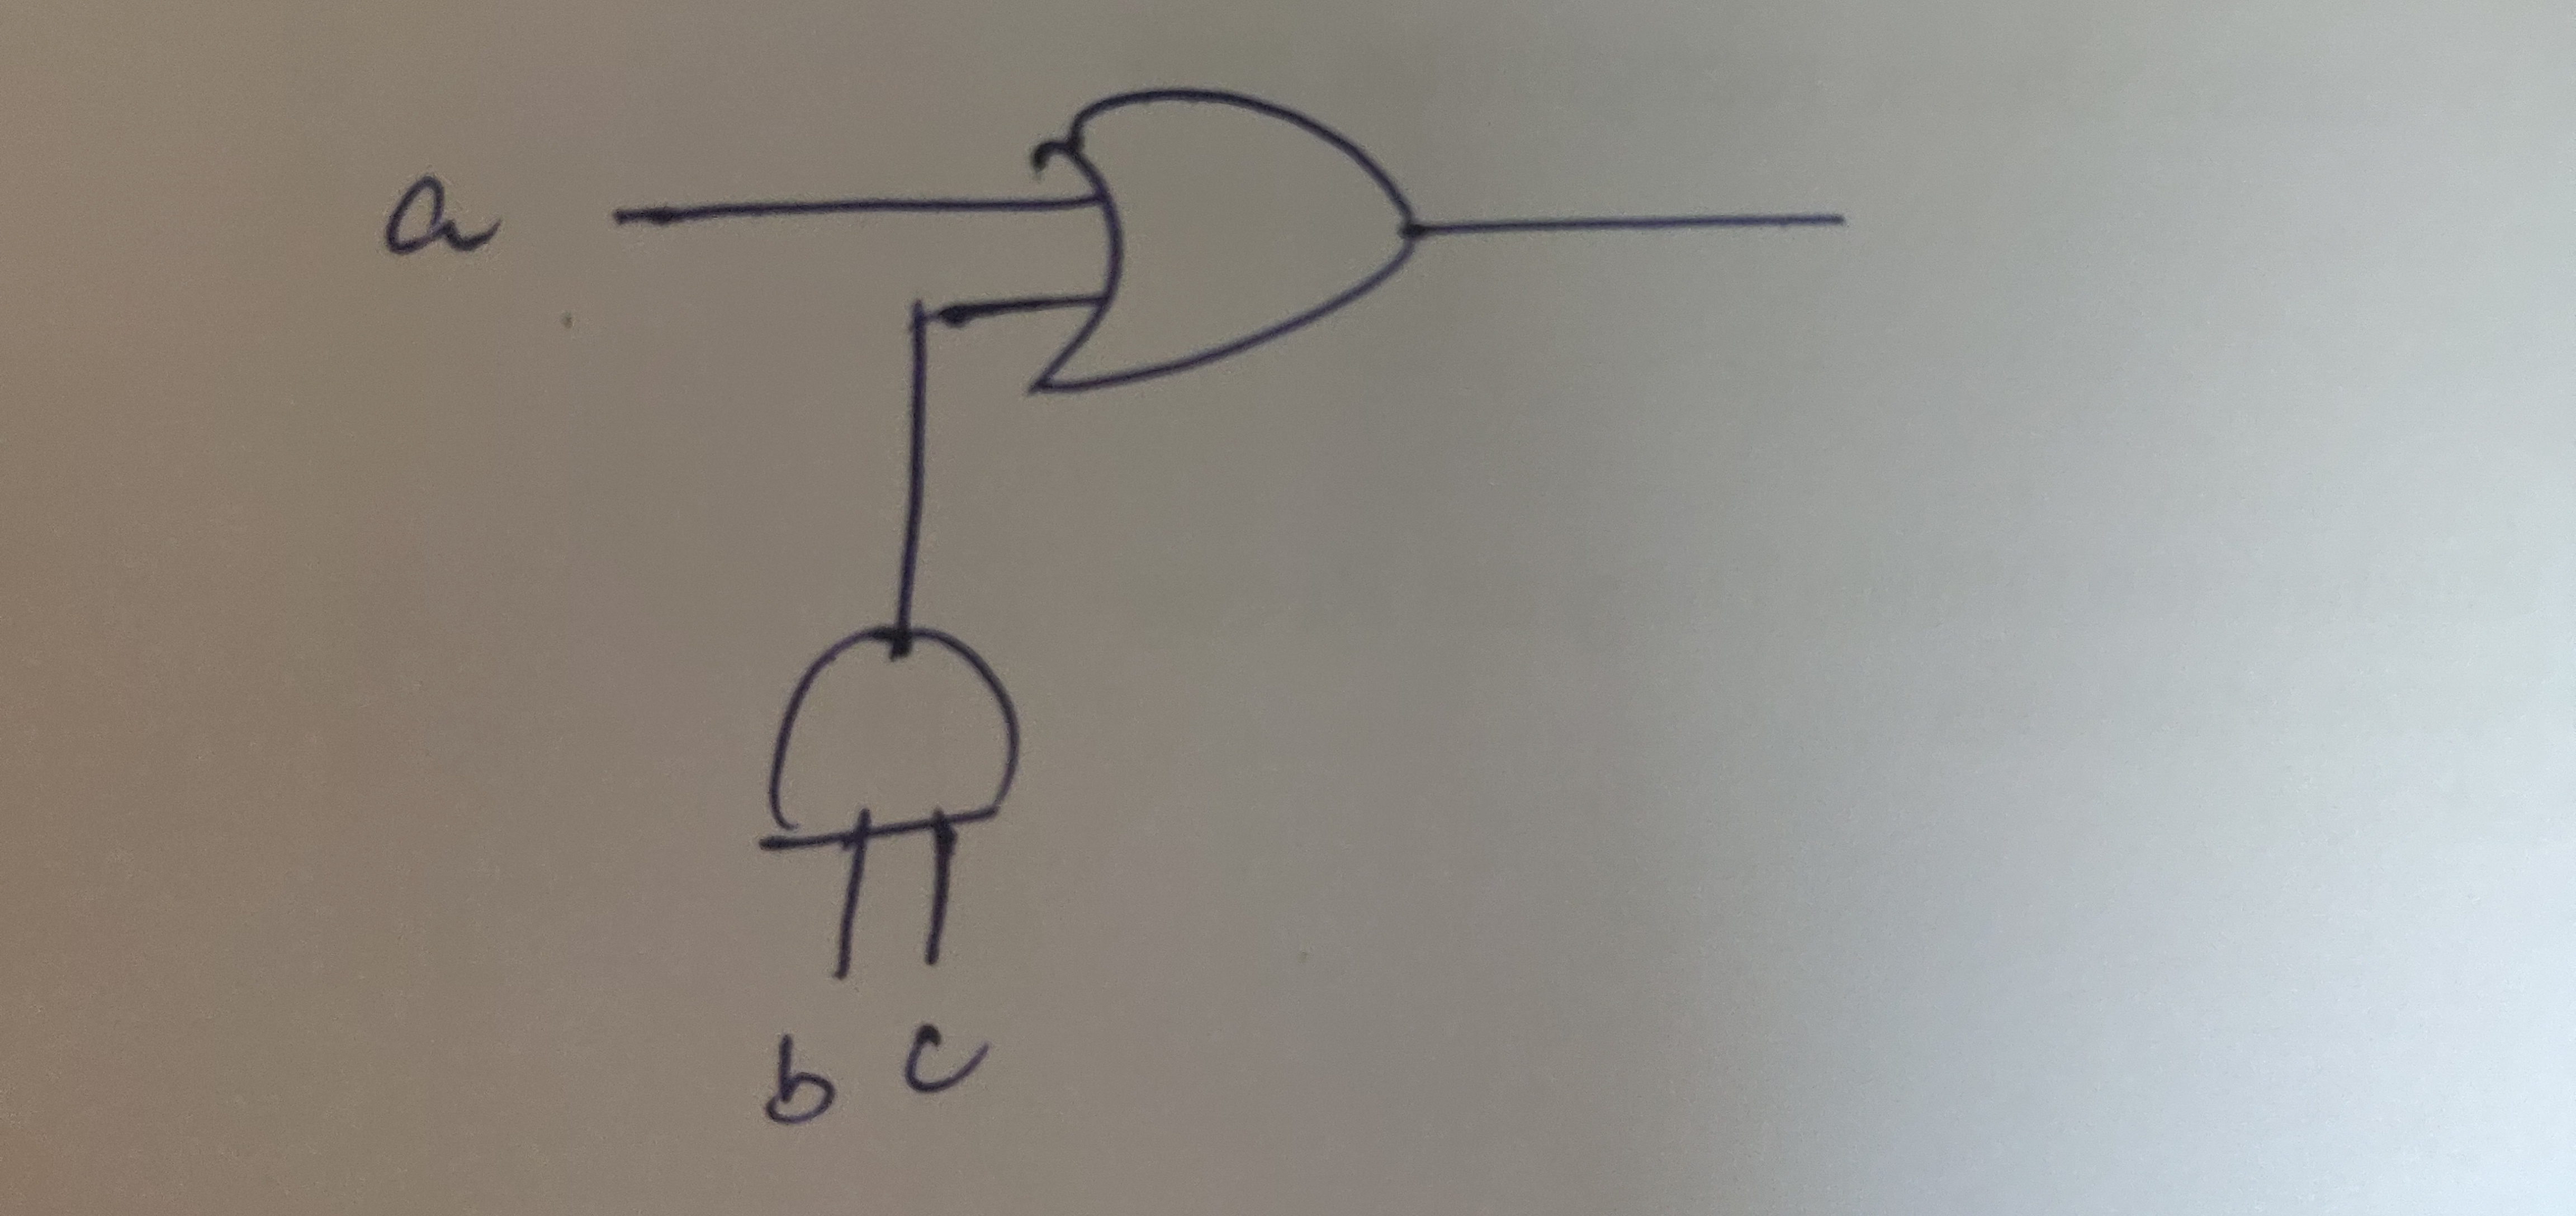 a
b c